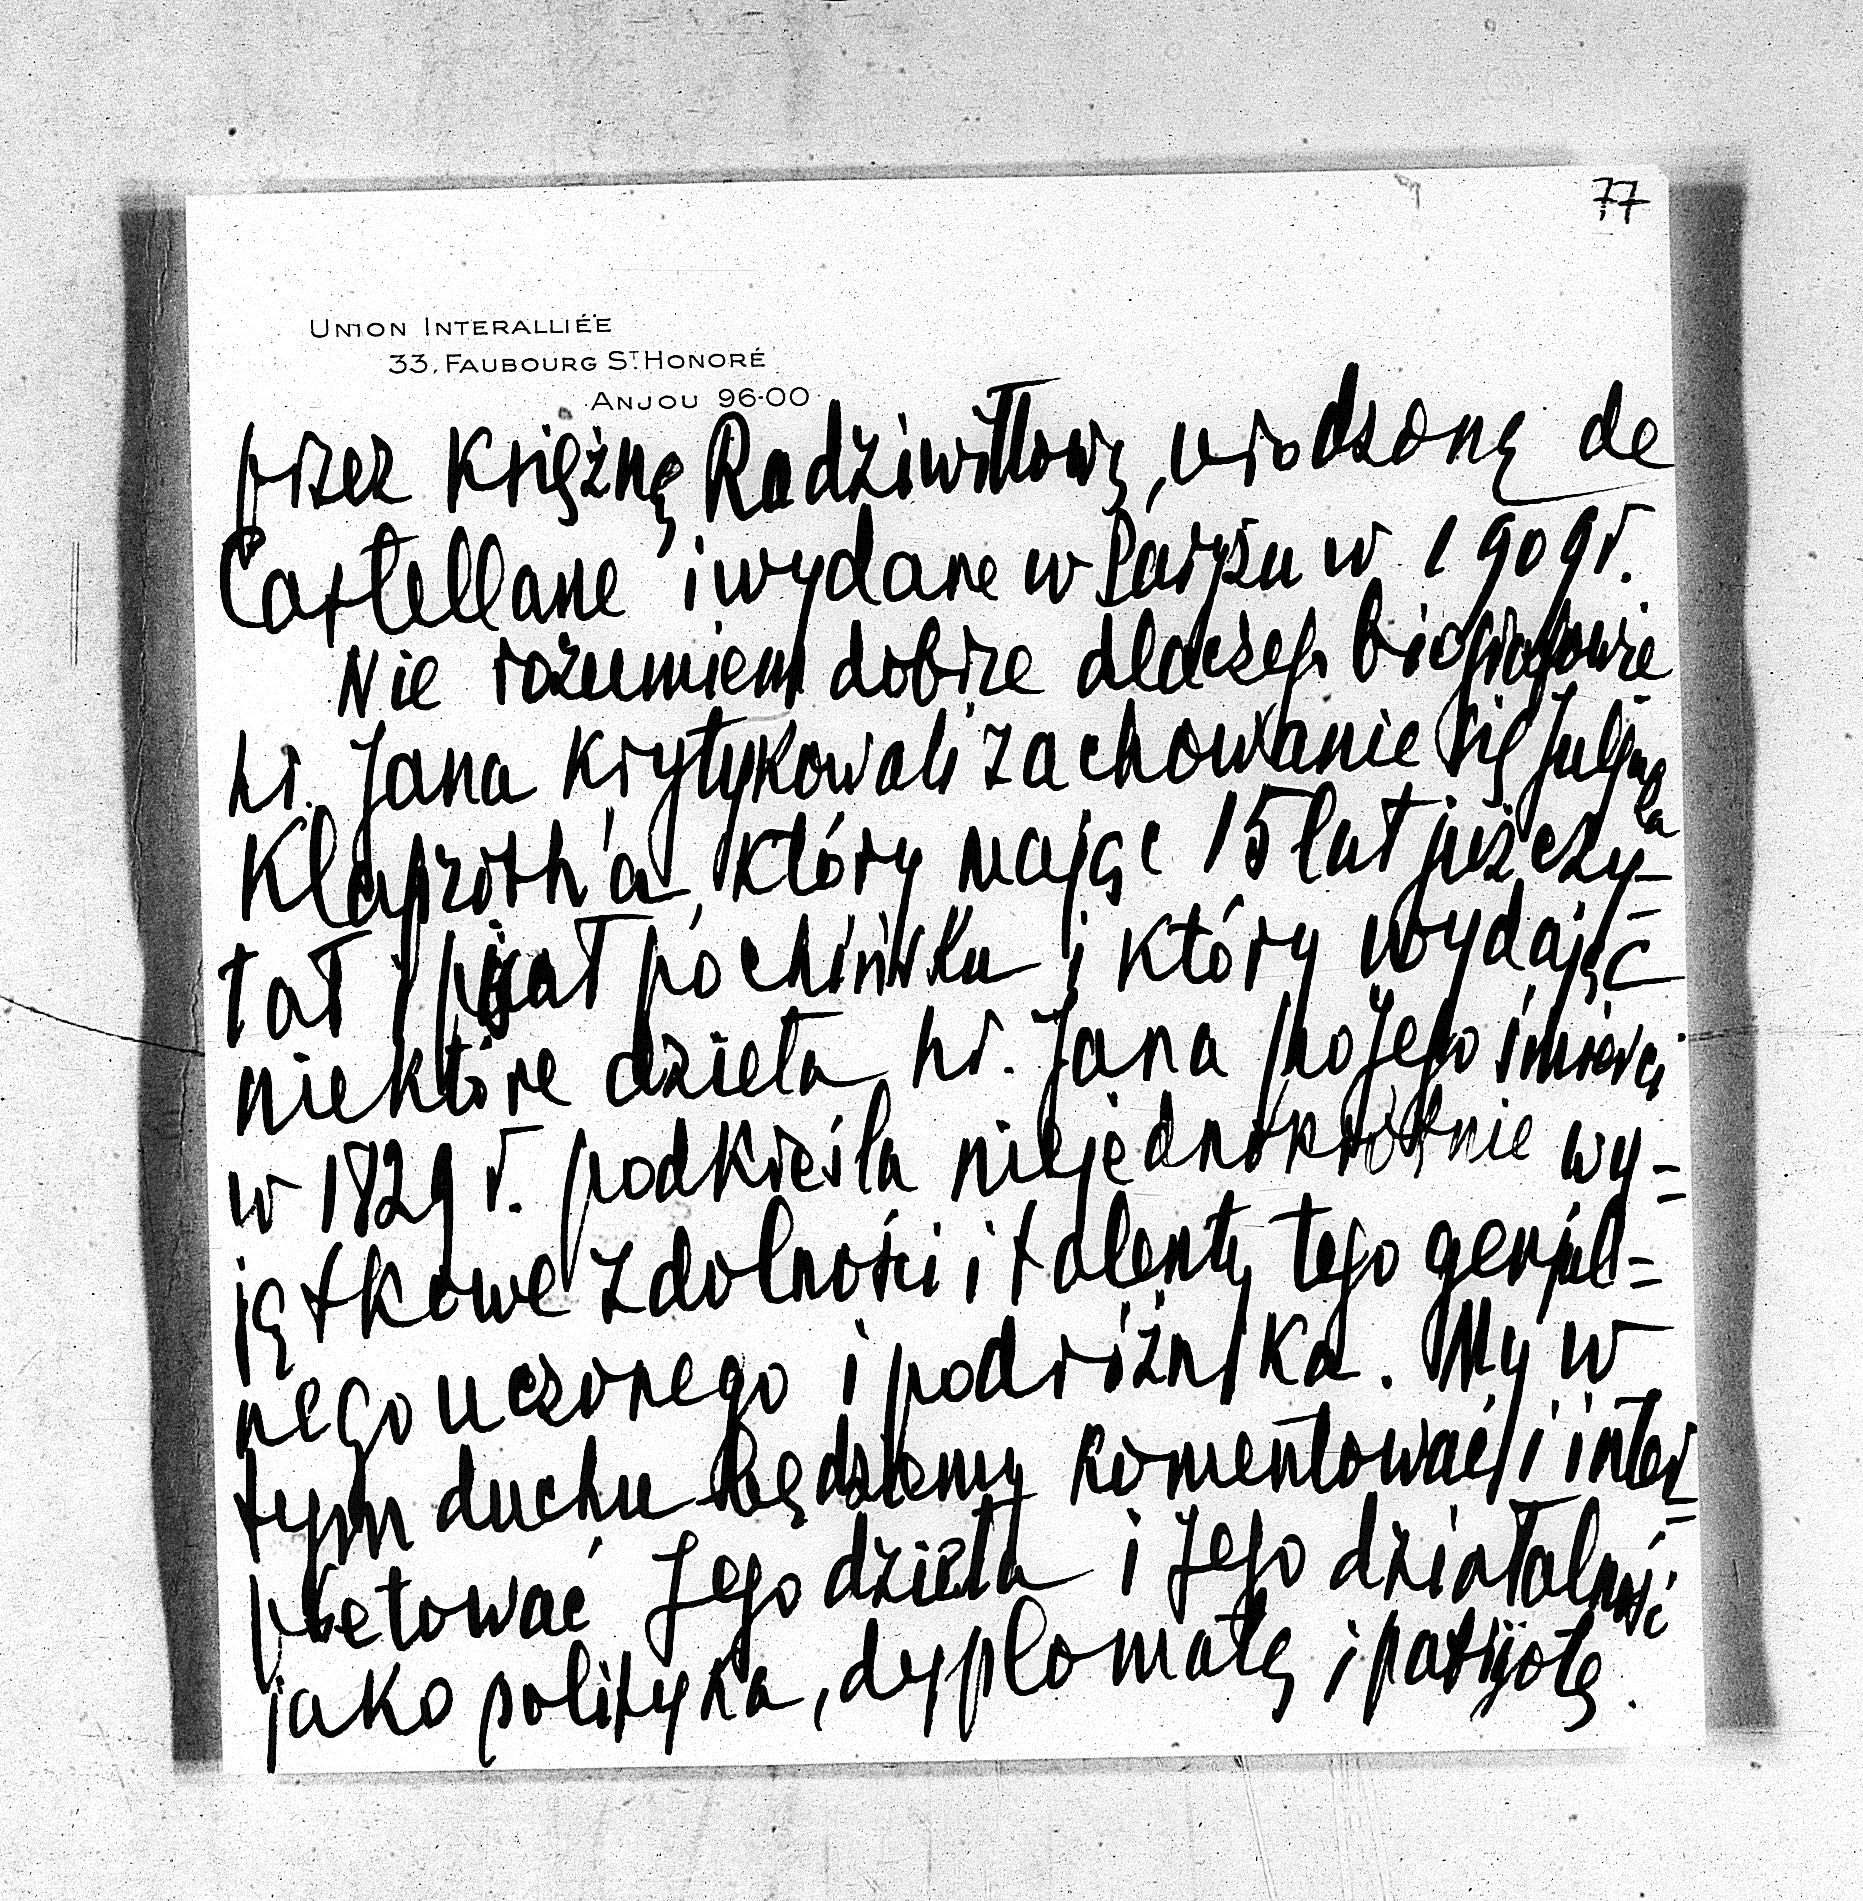 77
UNION INTERALLIÉE
33, FAUBOURG ST. HONORÉ
ANJOU 96-00
przez Księżnę Radziwiłłową, urodzoną de
Castellane i wydane w Paryżu w 1909 r.
Nie rozumiem dobrze dlaczego biografowie
hr. Jana krytykowali zachowanie się Juljusza
Klaproth'a, który mając 15 lat już czy-
tał i pisał po chińsku i który wydając
niektóre dzieła hr. Jana po Jego śmierci
w 1829 r. podkreśla niejednokrotnie wy=
jątkowe zdolności i talenty tego genjal=
nego uczonego i podróżnika. My w
tym duchu będziemy komentować i inter=
pretować Jego dzieła i Jego działalność
jako polityka, dyplomatę i patrjotę.